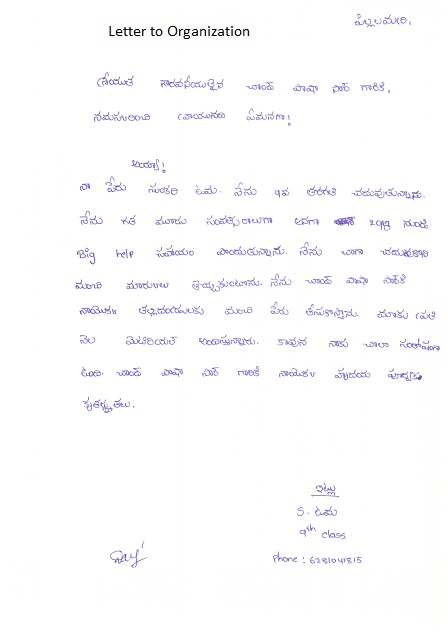 పిల్లలమర్రి,
Letter to Organization
శ్రీయుత గౌరవనీయులైన చాంద్ పాషా సార్ గారికి,
నమస్కరించి వ్రాయునది ఏమనగా!
అయ్యా!
నా పేరు సుంకరి ఉమ. నేను 9వ తరగతి చదువుతున్నాను.
నేను గత మూడు సంవత్సరాలుగా అనగా 2019 నుండి
Big help సహాయం పొందుతున్నాను. నేను బాగా చదువుకొని
మంచి మార్కులు తెచ్చుకుంటాను. నేను చాంద్ పాషా సార్‌కి
నాయొక్క తల్లిదండ్రులకు మంచి పేరు తీసుకొస్తాను. మాకు ప్రతి
నెల మెటీరియల్ అందిస్తున్నారు. కావున నాకు చాలా సంతోషంగా
ఉంది. చాంద్ పాషా సార్ గారికి నాయొక్క హృదయ పూర్వక
కృతజ్ఞతలు.
ఇట్లు
S. ఉమ
9th class
Phone : 6281041815